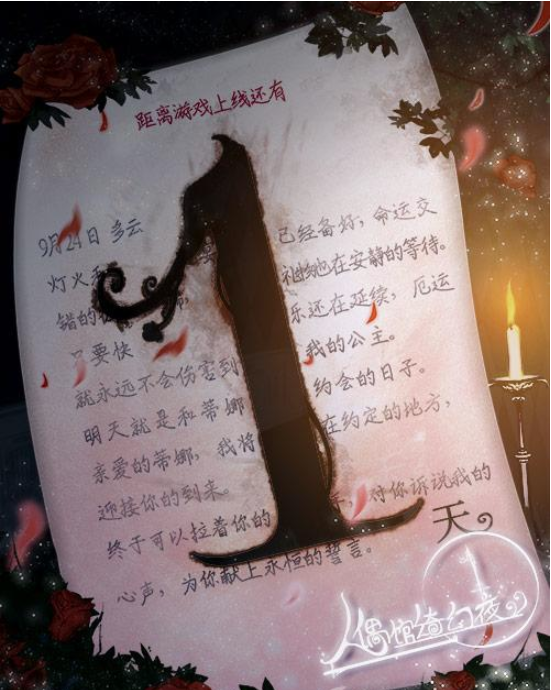 距离游戏上线还有
1
天
9月24日 多云
灯火 已经备好，命运交
错的 礼物也在安静的等待。
乐还在延续，厄运
只要快
就永远不会伤害到 我的公主。
明天就是和蒂娜 约会的日子。
亲爱的蒂娜，我将 在约定的地方，
迎接你的到来。
终于可以拉着你的 对你诉说我的
心声，为你献上永恒的誓言。
人偶馆绮幻夜